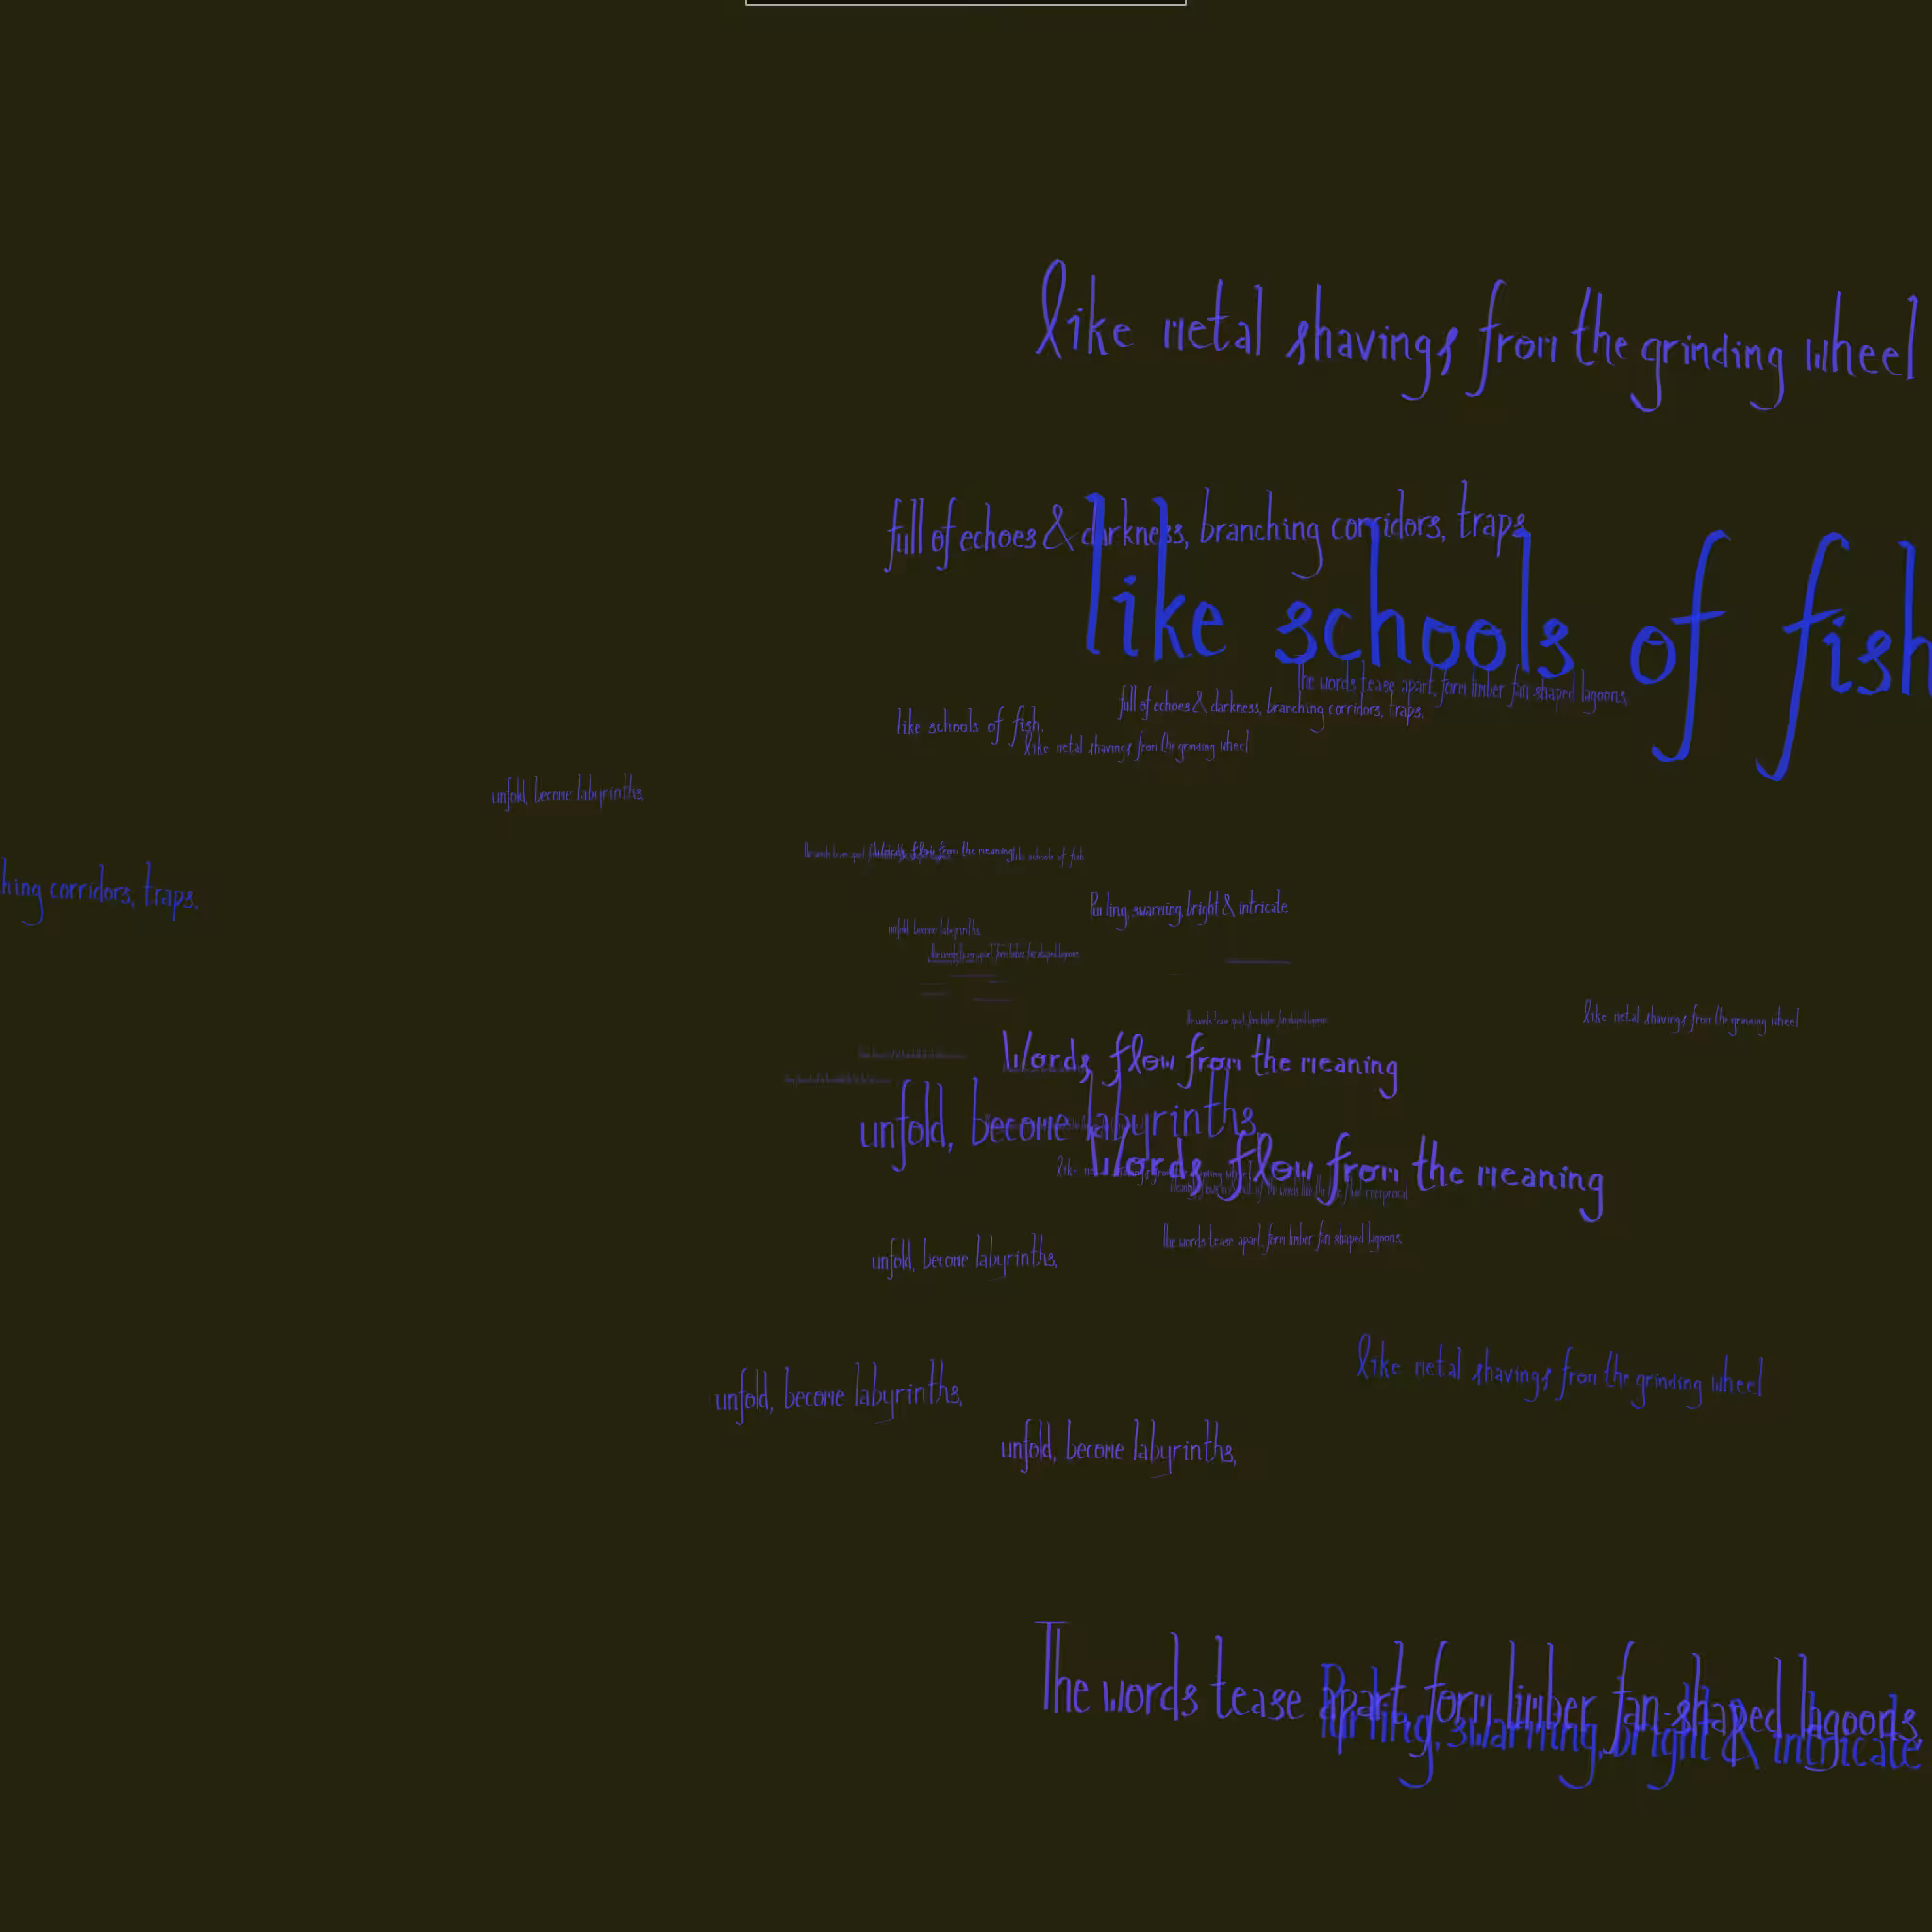 like metal shavings from the grinding wheel
full of echoes & darkness, branching corridors, traps.
like schools of fish
The words tease apart, form limber fan-shaped lagoons,
full of echoes & darkness, branching corridors, traps.
like schools of fish.
like metal shavings from the grinding wheel
unfold, become labyrinths,
Words flow from the meaning
like schools of fish.
hing corridors, traps.
bright & intricate
unfold, become labyrinths,
The words tease apart, form limber fan-shaped lagoons,
like metal shavings from the grinding wheel
The words tease apart, form limber fan-shaped lagoons,
Words flow from the meaning
unfold, become labyrinths,
Words flow from the meaning
like metal shavings from the grinding wheel
The words tease apart, form limber fan-shaped lagoons,
unfold, become labyrinths,
like metal shavings from the grinding wheel
unfold, become labyrinths,
unfold, become labyrinths,
The words tease apart, form limber fan-shaped lagoons,
swarming, bright & intricate